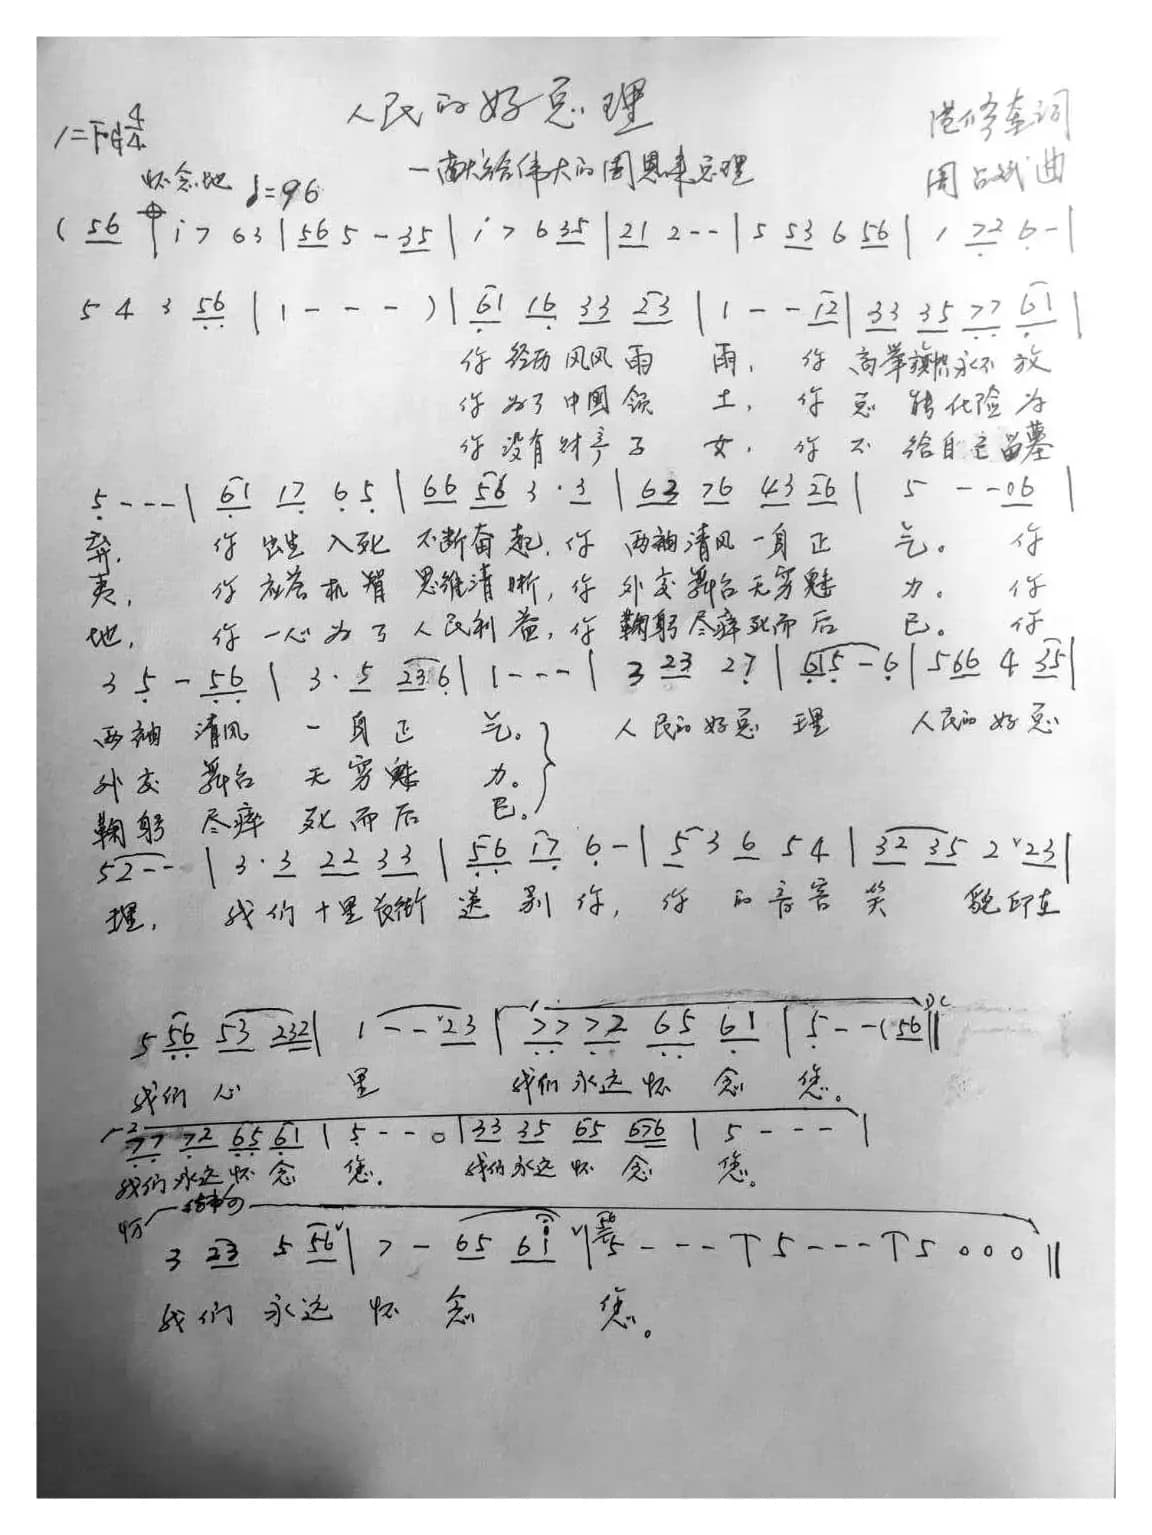 人民的好总理
1=F 4/4
—献给伟大的周恩来总理
周占斌曲
怀念地 ♩=96
( 56 | i 7 6 3 | 56 5 - 35 | i 7 6 35 | 21 2 - - | 5 53 6 56 | 1 72 6 - |
5 4 3 56 | 1 - - - ) | 61 16 33 23 | 1 - - 12 | 33 35 77 61 |
你经历风风雨 雨, 你 高举旗帜永不放
你为了中国领 土, 你 总 转化险为
你没有财产子 女, 你 不 给自己留墓
5 - - - | 61 17 6 5 | 66 56 3 · 3 | 63 76 43 26 | 5 - - 06 |
弃, 你出生入死 不断奋起, 你 两袖清风一身正 气。 你
夷, 你应答机智 思维清晰, 你 外交舞台无穷魅 力。 你
地, 你一心为了人民利益, 你 鞠躬尽瘁死而后 已。 你
3 5 - 56 | 3 · 5 236 | 1 - - - | 3 23 27 | 615 - 6 | 566 4 35 |
两袖 清风 一身正 气。 人民的好总 理 人民的好总
外交 舞台 无穷魅 力。
鞠躬 尽瘁 死而后 已。
52 - - | 3 · 3 22 33 | 56 17 6 - | 5 3 6 54 | 32 35 2 ˅ 23 |
理, 我们十里长街 送别你, 你的音容笑 貌印在
5 56 53 232 | 1 - - ˅ 23 | 77 72 65 61 | 5 - - ( 56 ‖
我们 心 里 我们永远怀 念 您。
77 72 65 61 | 5 - - 0 | 33 35 65 676 | 5 - - - |
我们永远怀 念 您. 我们永远怀 念 您。
3 23 5 56 ˅ | 7 - 65 6i ˅ | 5 - - - | 5 - - - | 5 0 0 0 ‖
我们 永远 怀 念 您。